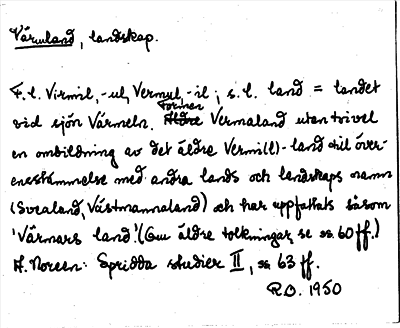 Värmland, landskap.
F.l. Virmil, -ul, Vermul, -il; s.l. land = landet
vid sjön Värmeln. Formen Vermaland utan tvivel
en ombildning av det äldre Vermil(l)-land till över-
ensstämmelse med andra lands och landskaps namn
(Svealand, Västmannaland) och har uppfattats såsom
'Värmars land'. (Om äldre tolkningar, se ss. 60 ff.)
A. Noreen: Spridda studier II, ss 63 ff.
R.O. 1950